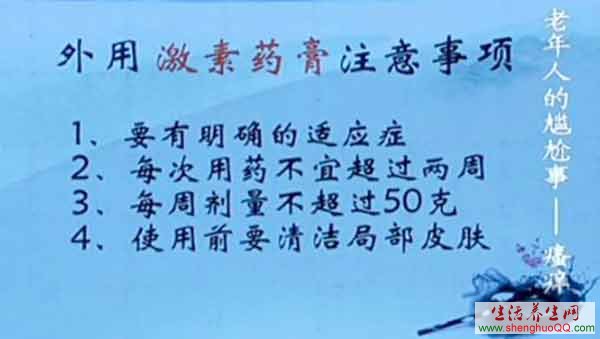 外用激素药膏注意事项
1、要有明确的适应症
2、每次用药不宜超过两周
3、每周剂量不超过50克
4、使用前要清洁局部皮肤
老年人的尴尬事——瘙痒
生活养生网
www.shenghuoQQ.com